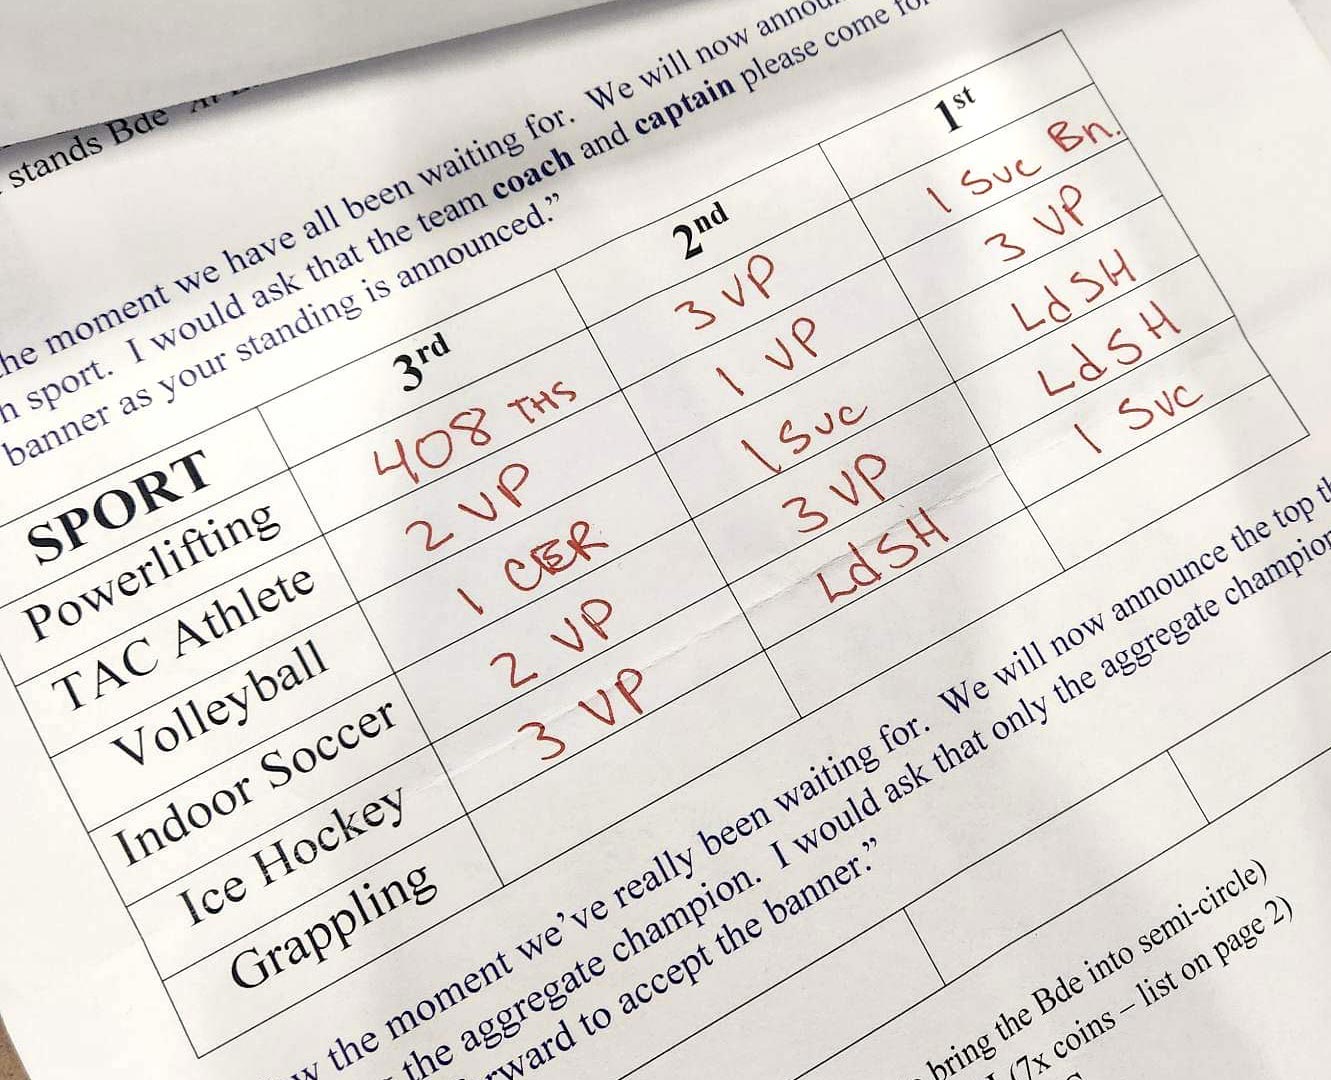 stands Bde
he moment we have all been waiting for. We will now annou
h sport. I would ask that the team coach and captain please come fo
banner as your standing is announced.”
SPORT 3rd 2nd 1st
Powerlifting 408 THS 3 VP 1 Svc Bn.
TAC Athlete 2 VP 1 VP 3 VP
Volleyball 1 CER 1 SVC LdSH
Indoor Soccer 2 VP 3 VP LdSH
Ice Hockey 3 VP LdSH 1 SVC
Grappling
w the moment we’ve really been waiting for. We will now announce the top th
the aggregate champion. I would ask that only the aggregate champion
rward to accept the banner.”
bring the Bde into semi-circle)
(7x coins – list on page 2)